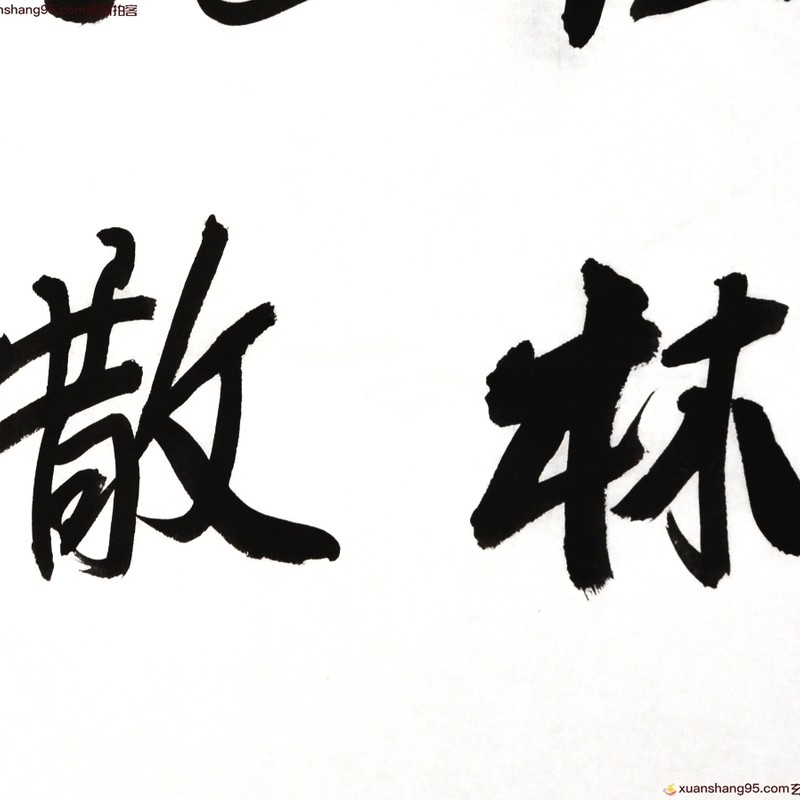 林
散
nshang95.com玄赏拍客
xuanshang95.com玄